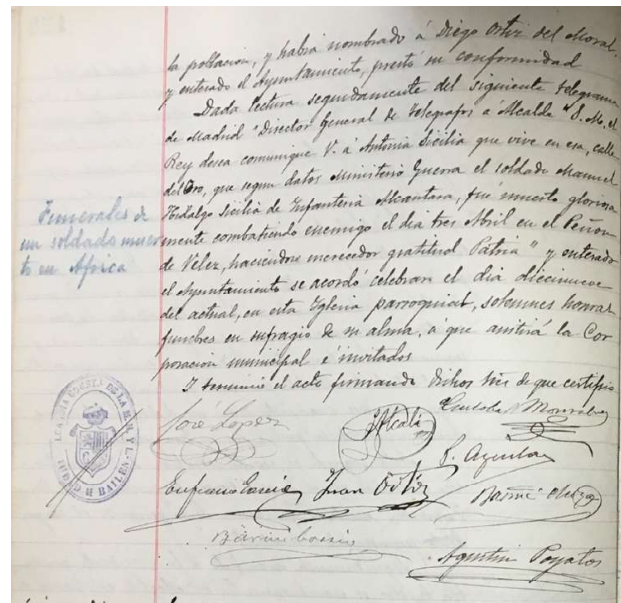 la poblacion, y había nombrado á Diego Ortiz del Moral,
y enterado el Ayuntamiento, prestó su conformidad
Dada lectura seguidamente del siguiente telegrama
de Madrid "Director General de Telegrafos á Alcalde "S. M. el
Rey desea comunique V. á Antonia Sicilia que vive en esa, calle
del Oro, que segun datos Ministerio Guerra el soldado Manuel
Hidalgo Sicilia de Infanteria Alcantara, fué muerto gloriosa
mente combatiendo enemigo el dia tres Abril en el Peñon
de Velez, haciendose merecedor gratitud Patria" y enterado
el Ayuntamiento se acordó celebrar el dia diecinueve
del actual, en esta Iglesia parroquial, solemnes honras
funebres en sufragio de su alma, á que asistirá la Cor
poracion municipal é invitados
Y termino el acto firmando dichos Sres de que certifico
Funerales de
un soldado muer
to en Africa
José Lopez
Alcalá
P. Aguilar
Eufrasio Garcia
Juan Ortiz
Agustin Poyatos
BAILEN